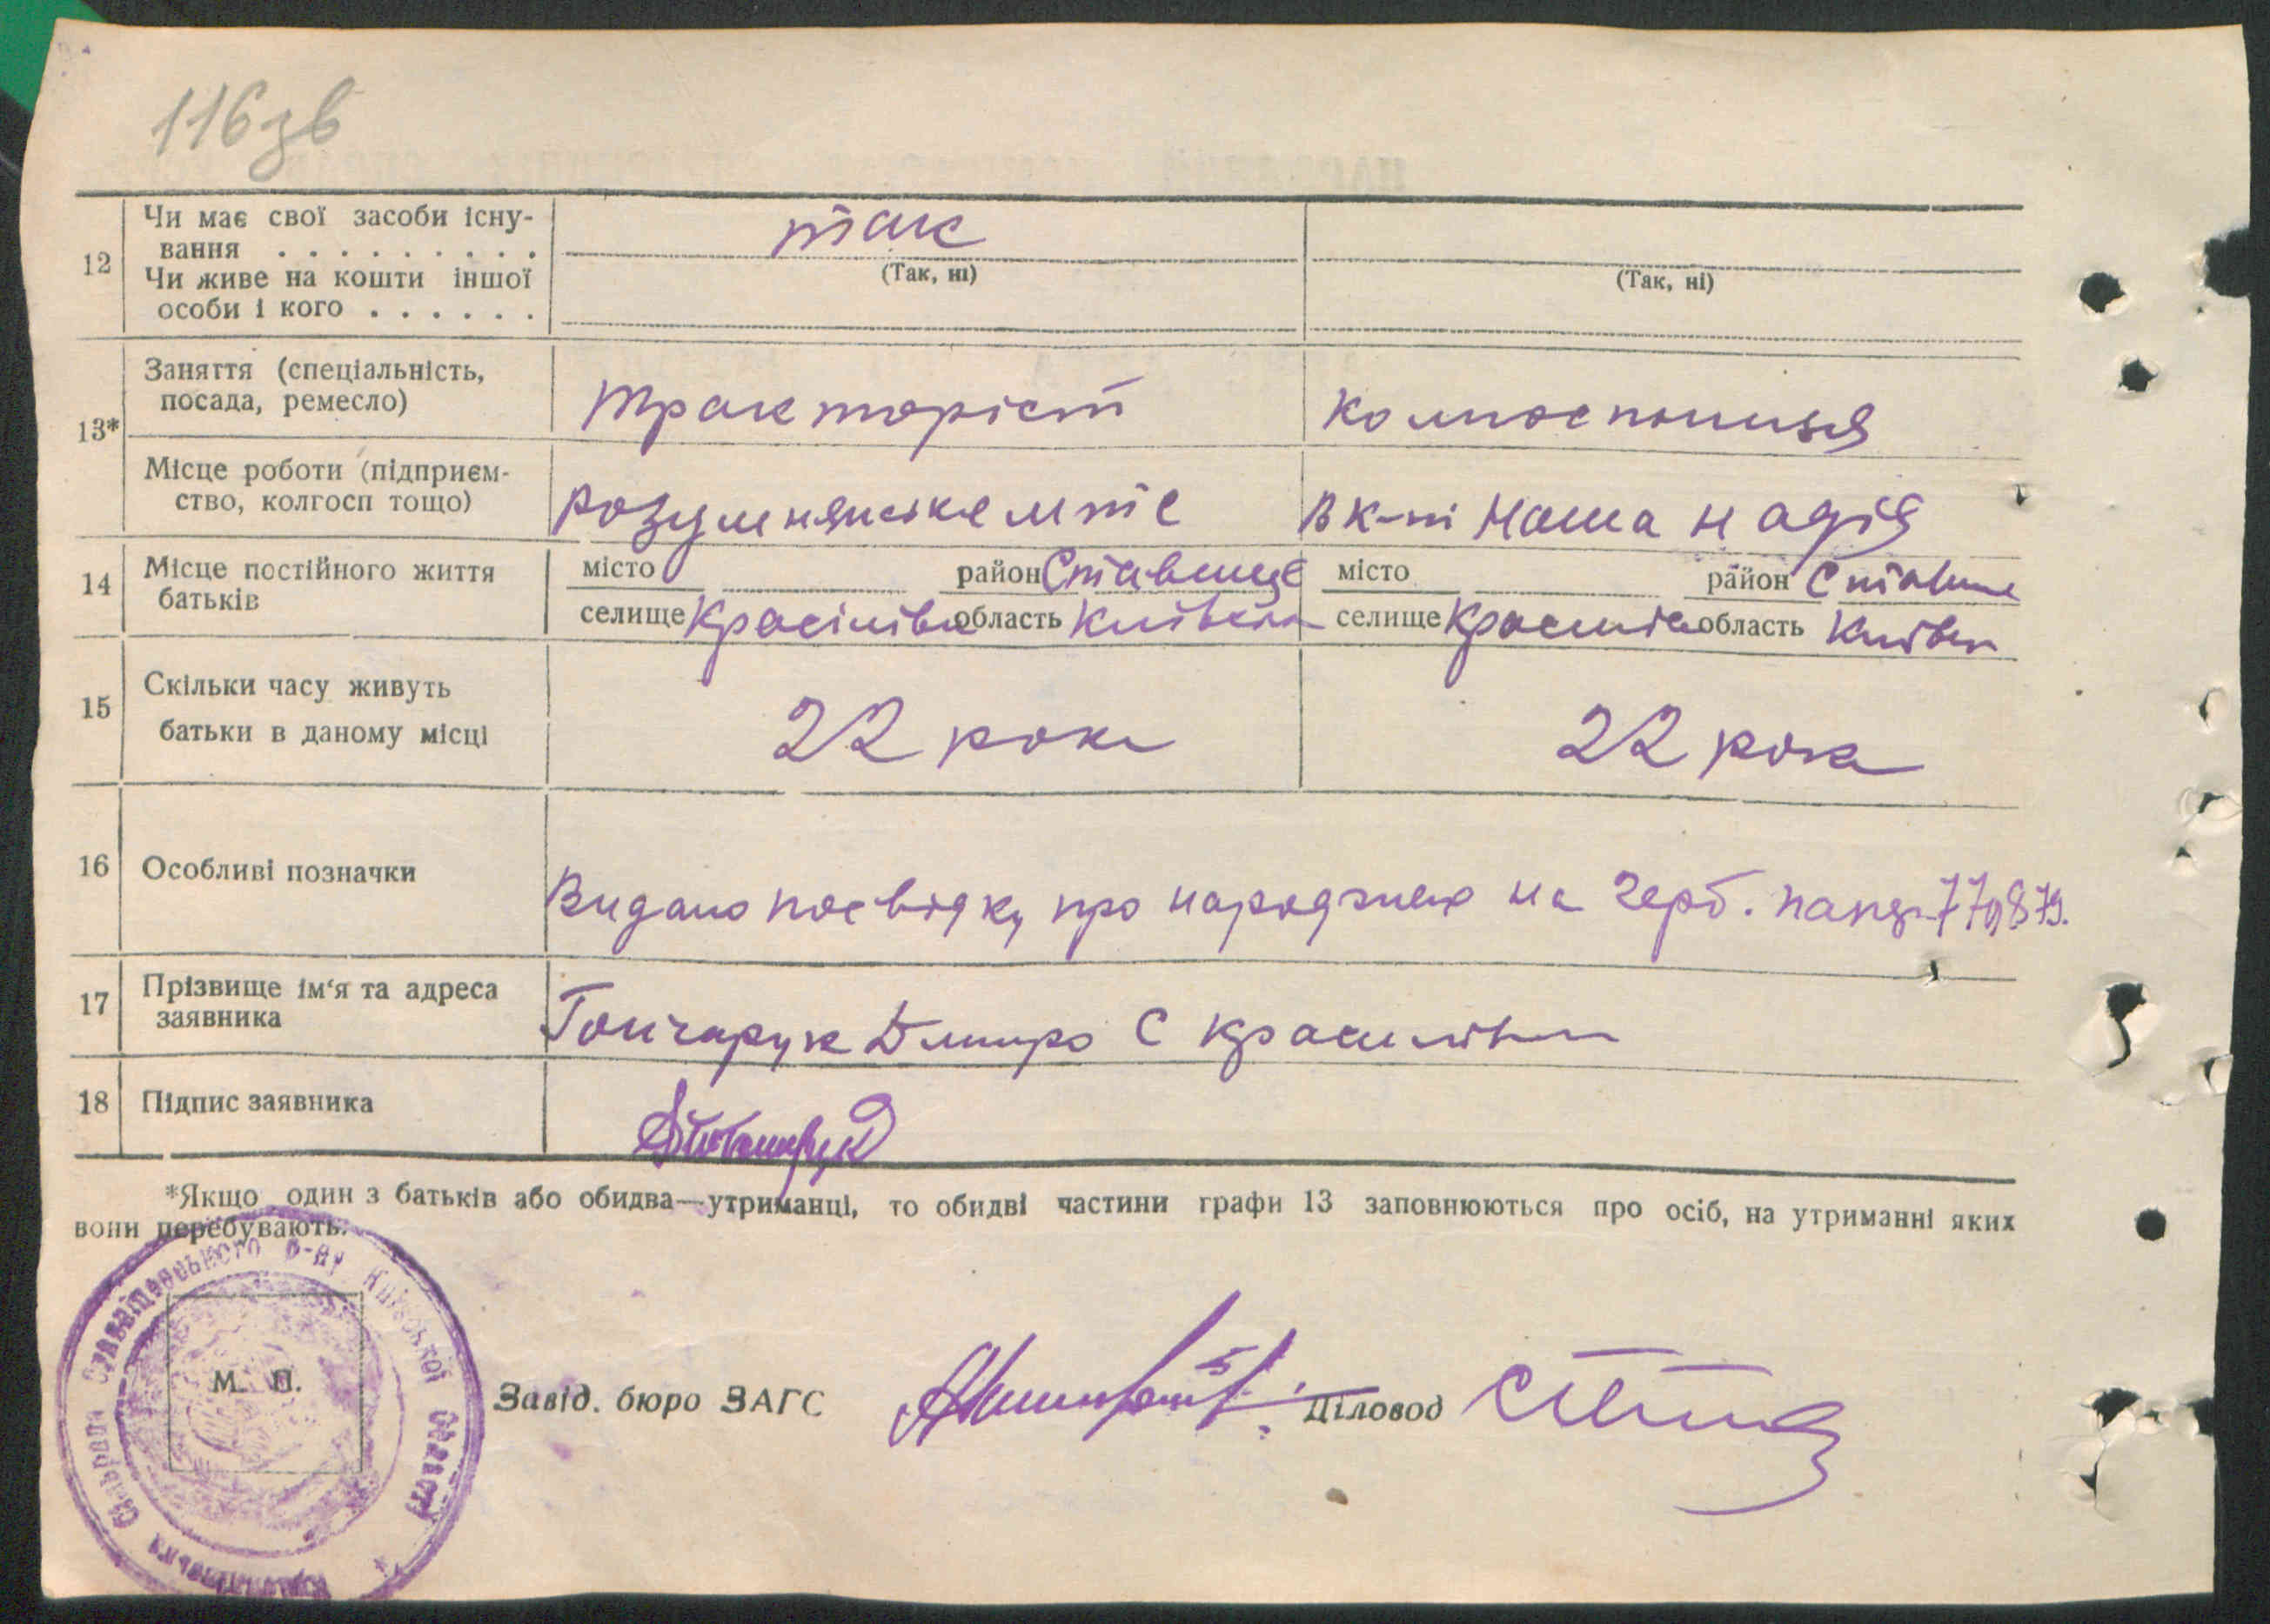 116зв
12 Чи має свої засоби існу-
вання . . . . . . . . . так
(Так, ні) (Так, ні)
Чи живе на кошти іншої
особи і кого . . . . . .
13* Заняття (спеціальність,
посада, ремесло) тракторіст колгоспниця
Місце роботи (підприєм-
ство, колгосп тощо) Розумнянське мтс в к-пі Наша надія
14 Місце постійного життя
батьків
місто район Ставище місто район Ставище
селище Красілівка область Київськ селище область Київськ
15 Скільки часу живуть
батьки в даному місці 22 роки 22 роки
16 Особливі позначки Видано посвідку про народження на герб. папері 779879.
17 Прізвище ім'я та адреса
заявника Гончарук Дмитро С Красилівки
18 Підпис заявника
*Якщо один з батьків або обидва—утриманці, то обидві частини графи 13 заповнюються про осіб, на утриманні яких
вони перебувають.
Сільрада Ставищанського р-ну Київської області
М. П.
Завід. бюро ЗАГС Діловод